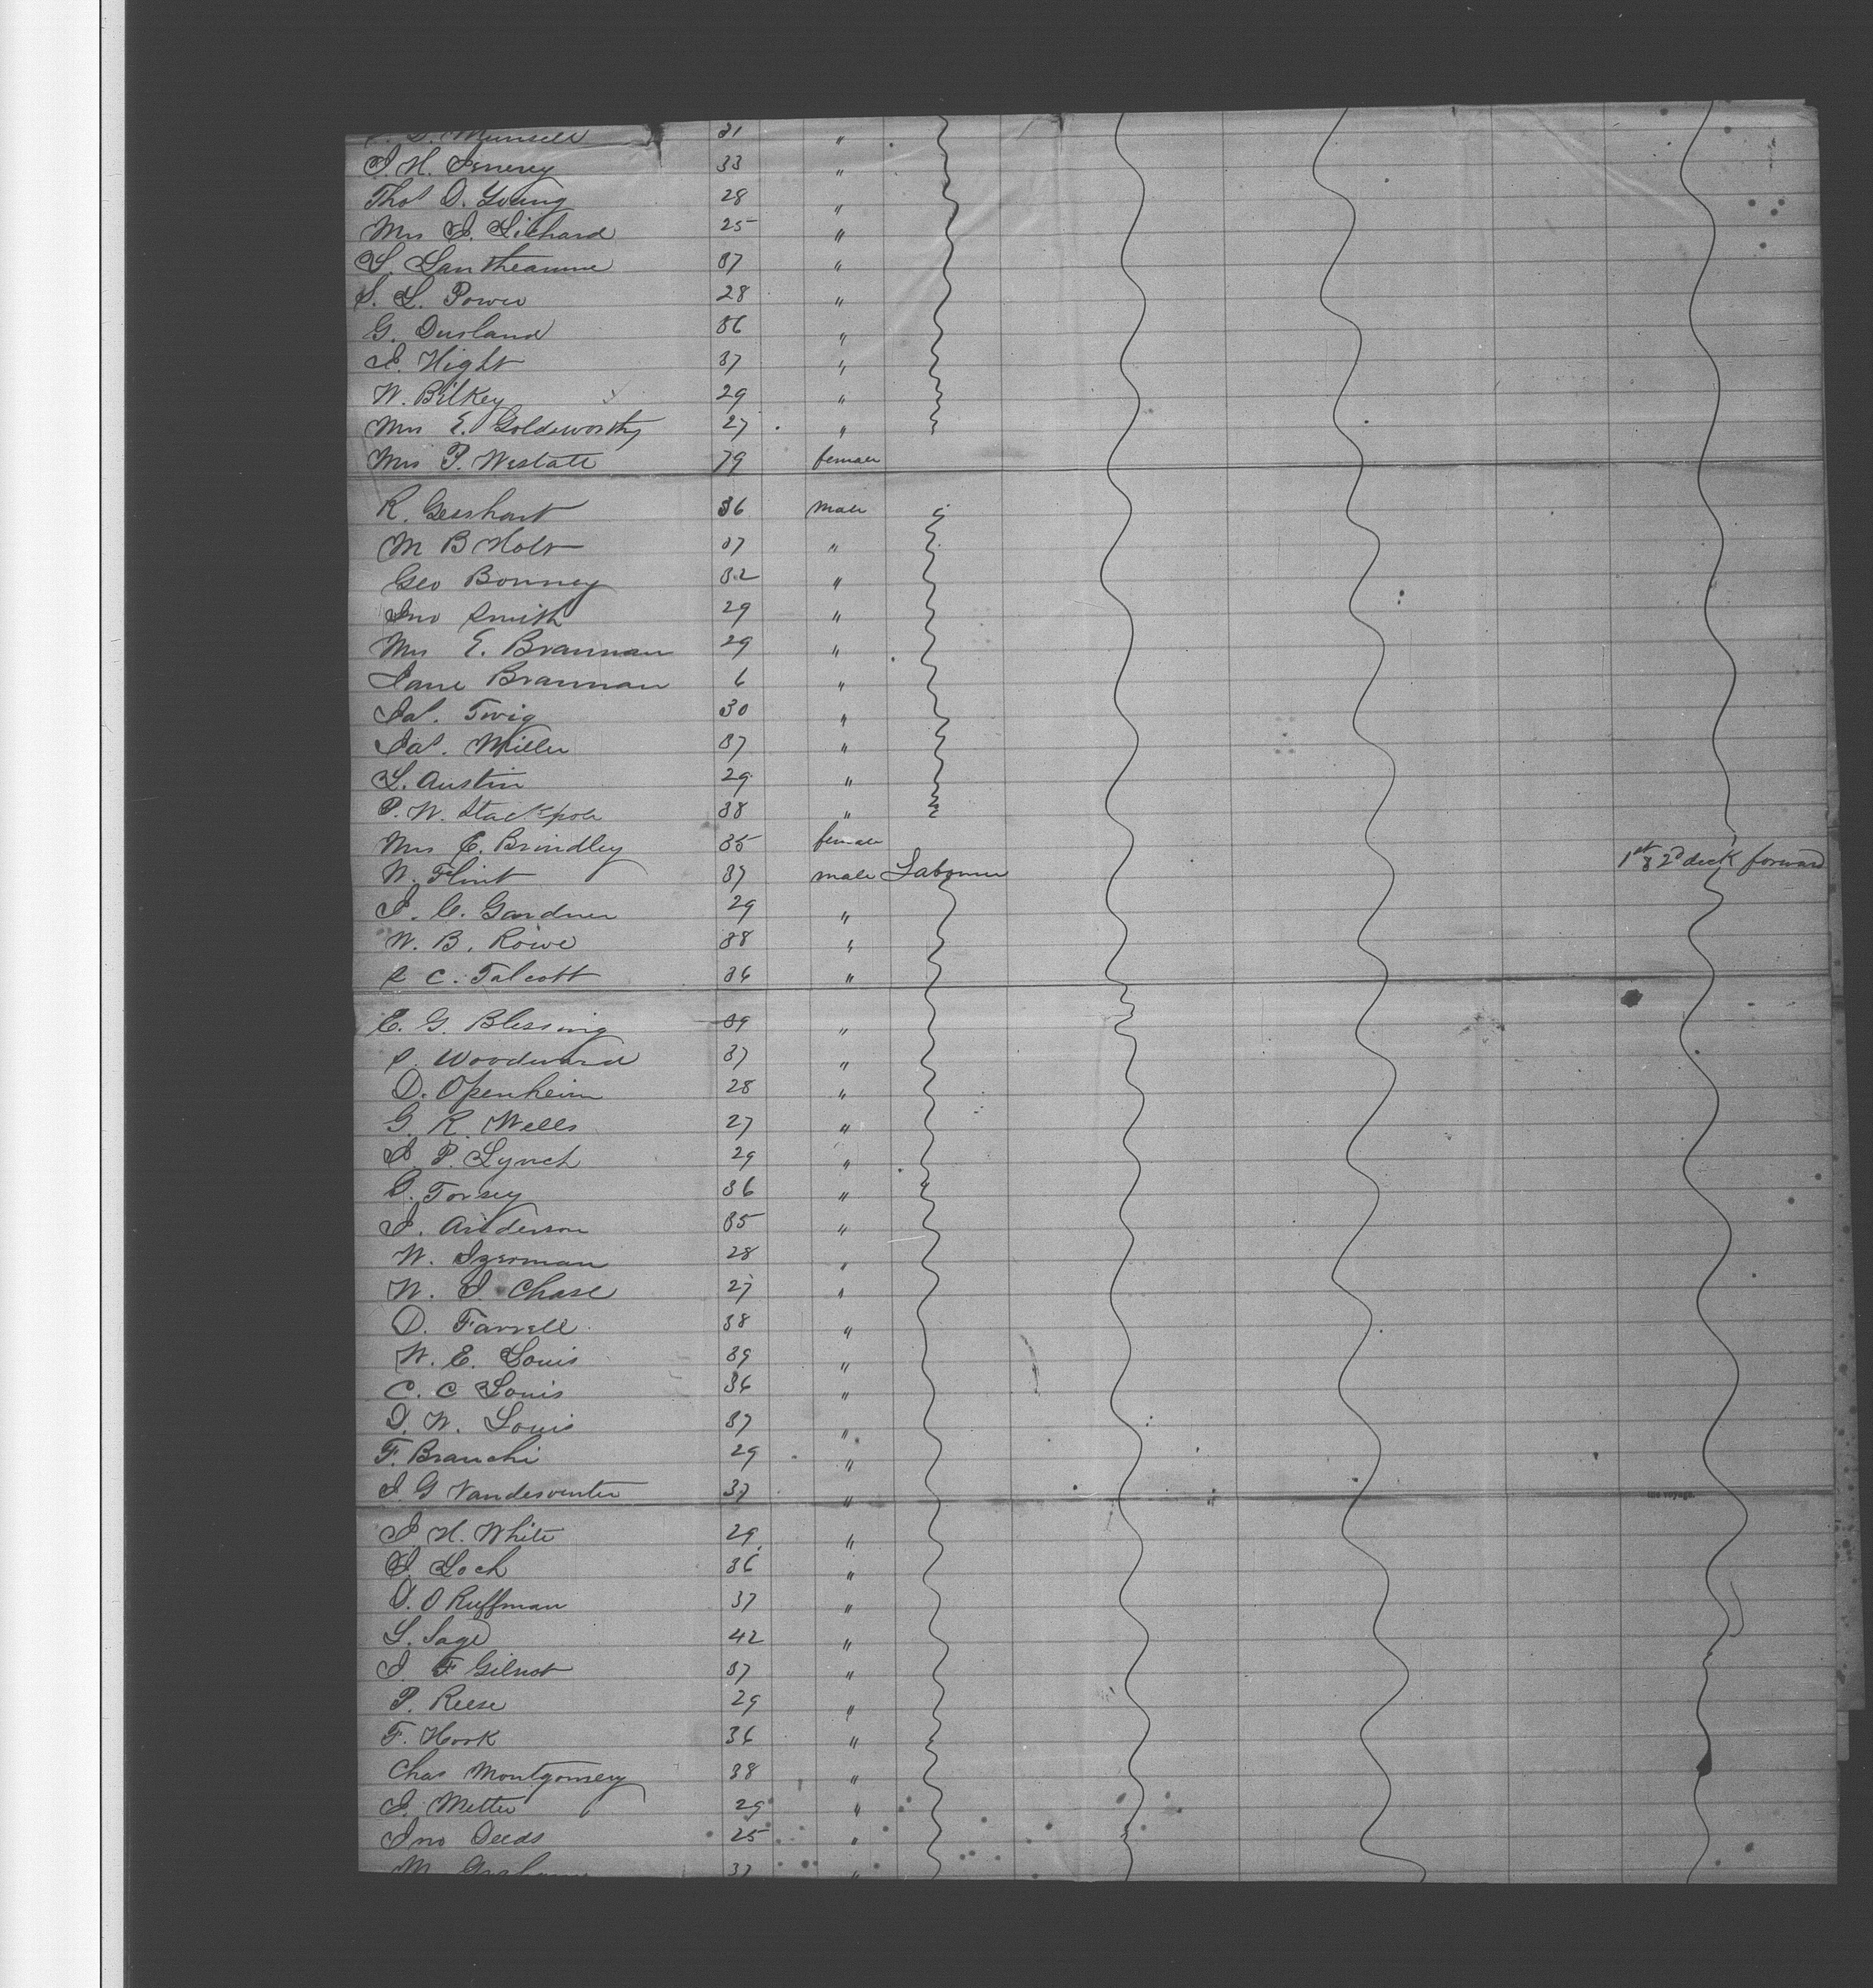 Munsell 31 "
J. H. 33 "
Thos D. Young 28 "
Mrs J. Lichard 25 "
L. Lantheaume 37 "
S. L. Power 28 "
G. Dusland 36 "
J. Hight 37 "
W. Bilkey 29 "
Mrs E. Goldsworthy 27 "
Mrs P. Westall 79 female
R. Geeshart 36 male
M B Holt 37 "
Geo Bonney 32 "
Jno Smith 29 "
Mrs E. Brannan 29 "
Jane Brannan 6 "
Jas. Twig 30 "
Jas. Miller 37 "
L. Austin 29 "
P. W. Stackpole 38 "
Mrs C. Brindley 35 female
W. Flint 37 male Labourer 1st & 2d deck forward
J. C. Gardner 29 "
W. B. Rowe 38 "
S C. Talcott 36 "
E. G. Blessing 39 "
S. Woodward 37 "
D. Openheim 28 "
G. R. Wells 27 "
J. P. Lynch 29 "
D. Torsey 36 "
J. Anderson 35 "
W. Izerman 28 "
W. J. Chase 27 "
D. Farrell 38 "
W. E. Louis 39 "
C. C Louis 36 "
D. W. Louis 37 "
F. Branchi 29 "
J. G Vandeventer 37 "
the voyage.
J. H. White 29 "
J. Loch 36 "
D. O Ruffman 37 "
L. Sage 42 "
J. F Gilnot 37 "
P. Reese 29 "
F. Hook 36 "
Chas Montgomery 38 "
J. Metter 29 "
Jno Deeds 25 "
M. Graham 37 "